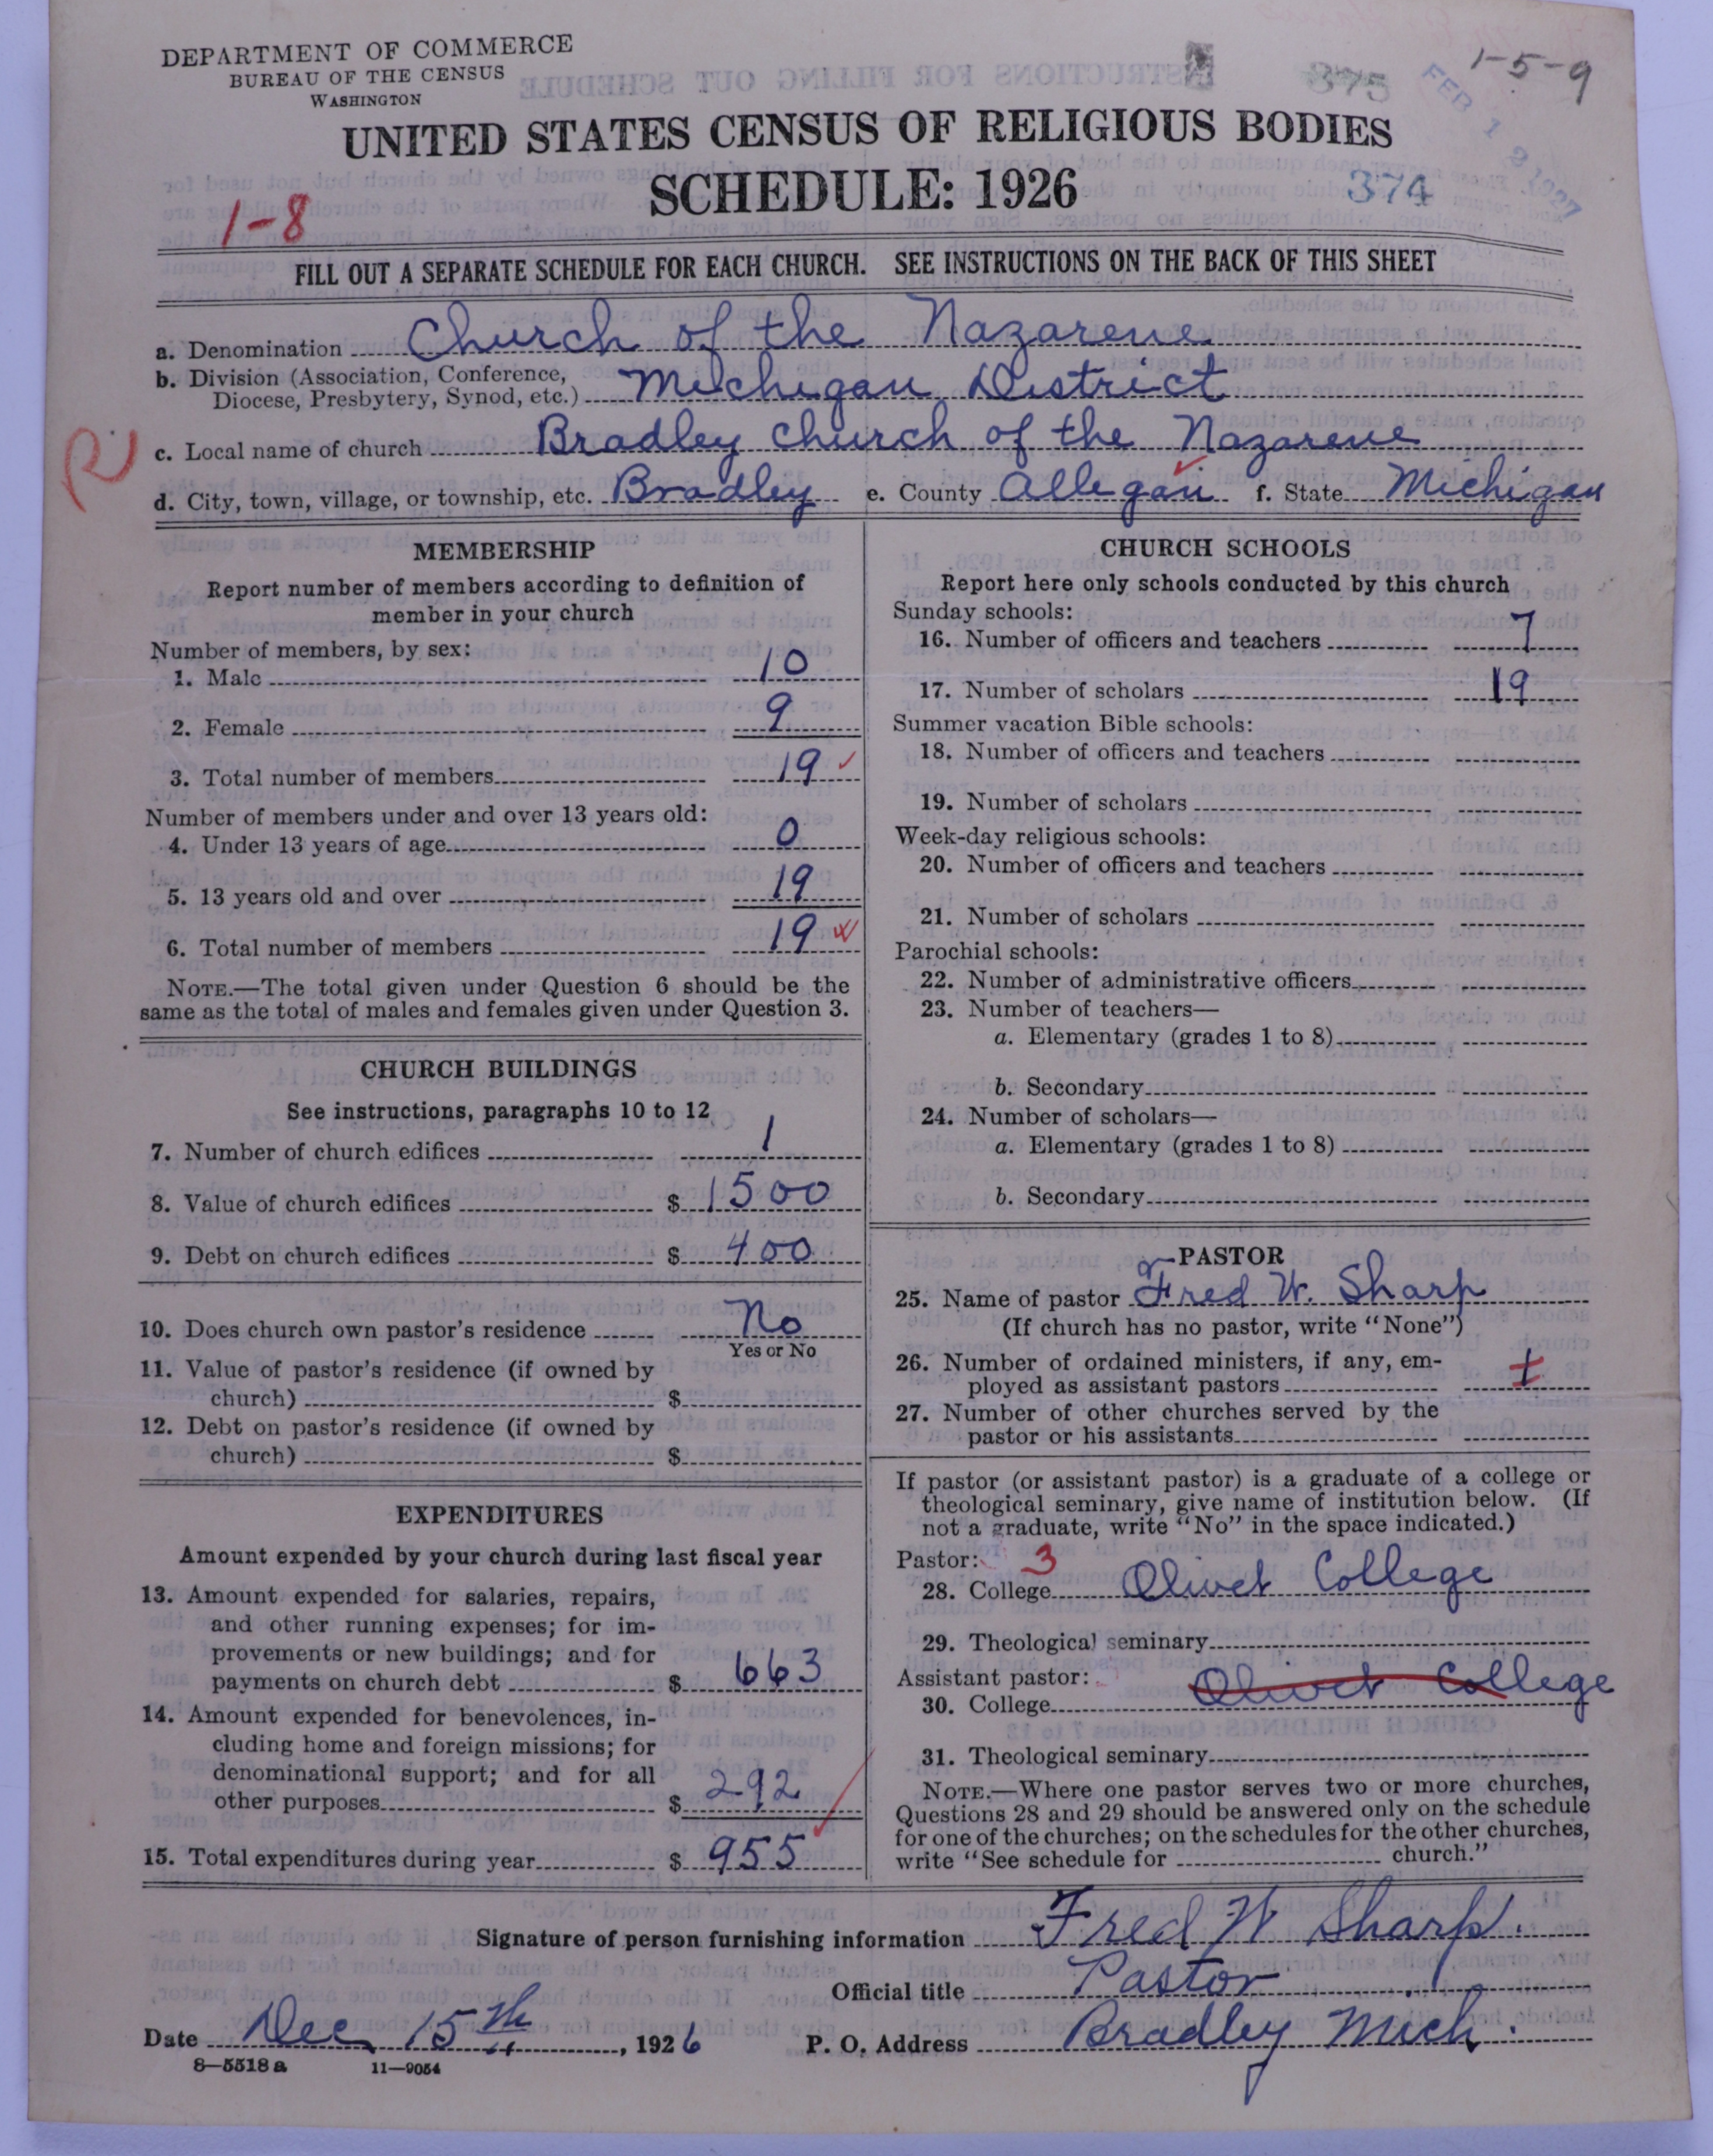 DEPARTMENT OF COMMERCE
BUREAU OF THE CENSUS
WASHINGTON
1-5-9
375
FEB 19 1927
UNITED STATES CENSUS OF RELIGIOUS BODIES
SCHEDULE: 1926
374
1-8
FILL OUT A SEPARATE SCHEDULE FOR EACH CHURCH. SEE INSTRUCTIONS ON THE BACK OF THIS SHEET
a. Denomination Church of the Nazarene
b. Division (Association, Conference, Diocese, Presbytery, Synod, etc.) Michigan District
R
c. Local name of church Bradley Church of the Nazarene
d. City, town, village, or township, etc. Bradley e. County Allegan f. State Michigan
MEMBERSHIP
Report number of members according to definition of
member in your church
Number of members, by sex:
1. Male 10
2. Female 9
3. Total number of members 19
Number of members under and over 13 years old:
4. Under 13 years of age 0
5. 13 years old and over 19
6. Total number of members 19
NOTE.—The total given under Question 6 should be the
same as the total of males and females given under Question 3.
CHURCH BUILDINGS
See instructions, paragraphs 10 to 12
7. Number of church edifices 1
8. Value of church edifices $ 1500
9. Debt on church edifices $ 400
10. Does church own pastor's residence No
Yes or No
11. Value of pastor's residence (if owned by
church) $
12. Debt on pastor's residence (if owned by
church) $
EXPENDITURES
Amount expended by your church during last fiscal year
13. Amount expended for salaries, repairs,
and other running expenses; for im-
provements or new buildings; and for
payments on church debt $ 663
14. Amount expended for benevolences, in-
cluding home and foreign missions; for
denominational support; and for all
other purposes $ 292
15. Total expenditures during year $ 955
CHURCH SCHOOLS
Report here only schools conducted by this church
Sunday schools:
16. Number of officers and teachers 7
17. Number of scholars 19
Summer vacation Bible schools:
18. Number of officers and teachers
19. Number of scholars
Week-day religious schools:
20. Number of officers and teachers
21. Number of scholars
Parochial schools:
22. Number of administrative officers
23. Number of teachers—
a. Elementary (grades 1 to 8)
b. Secondary
24. Number of scholars—
a. Elementary (grades 1 to 8)
b. Secondary
PASTOR
25. Name of pastor Fred W. Sharp
(If church has no pastor, write "None")
26. Number of ordained ministers, if any, em-
ployed as assistant pastors 1
27. Number of other churches served by the
pastor or his assistants
If pastor (or assistant pastor) is a graduate of a college or
theological seminary, give name of institution below. (If
not a graduate, write "No" in the space indicated.)
Pastor: 3
28. College Olivet College
29. Theological seminary
Assistant pastor:
30. College Olivet College
31. Theological seminary
NOTE.—Where one pastor serves two or more churches,
Questions 28 and 29 should be answered only on the schedule
for one of the churches; on the schedules for the other churches,
write "See schedule for church."
Signature of person furnishing information Fred W Sharp.
Official title Pastor
Date Dec 15th, 1926 P. O. Address Bradley Mich.
8—5518 a 11—9054